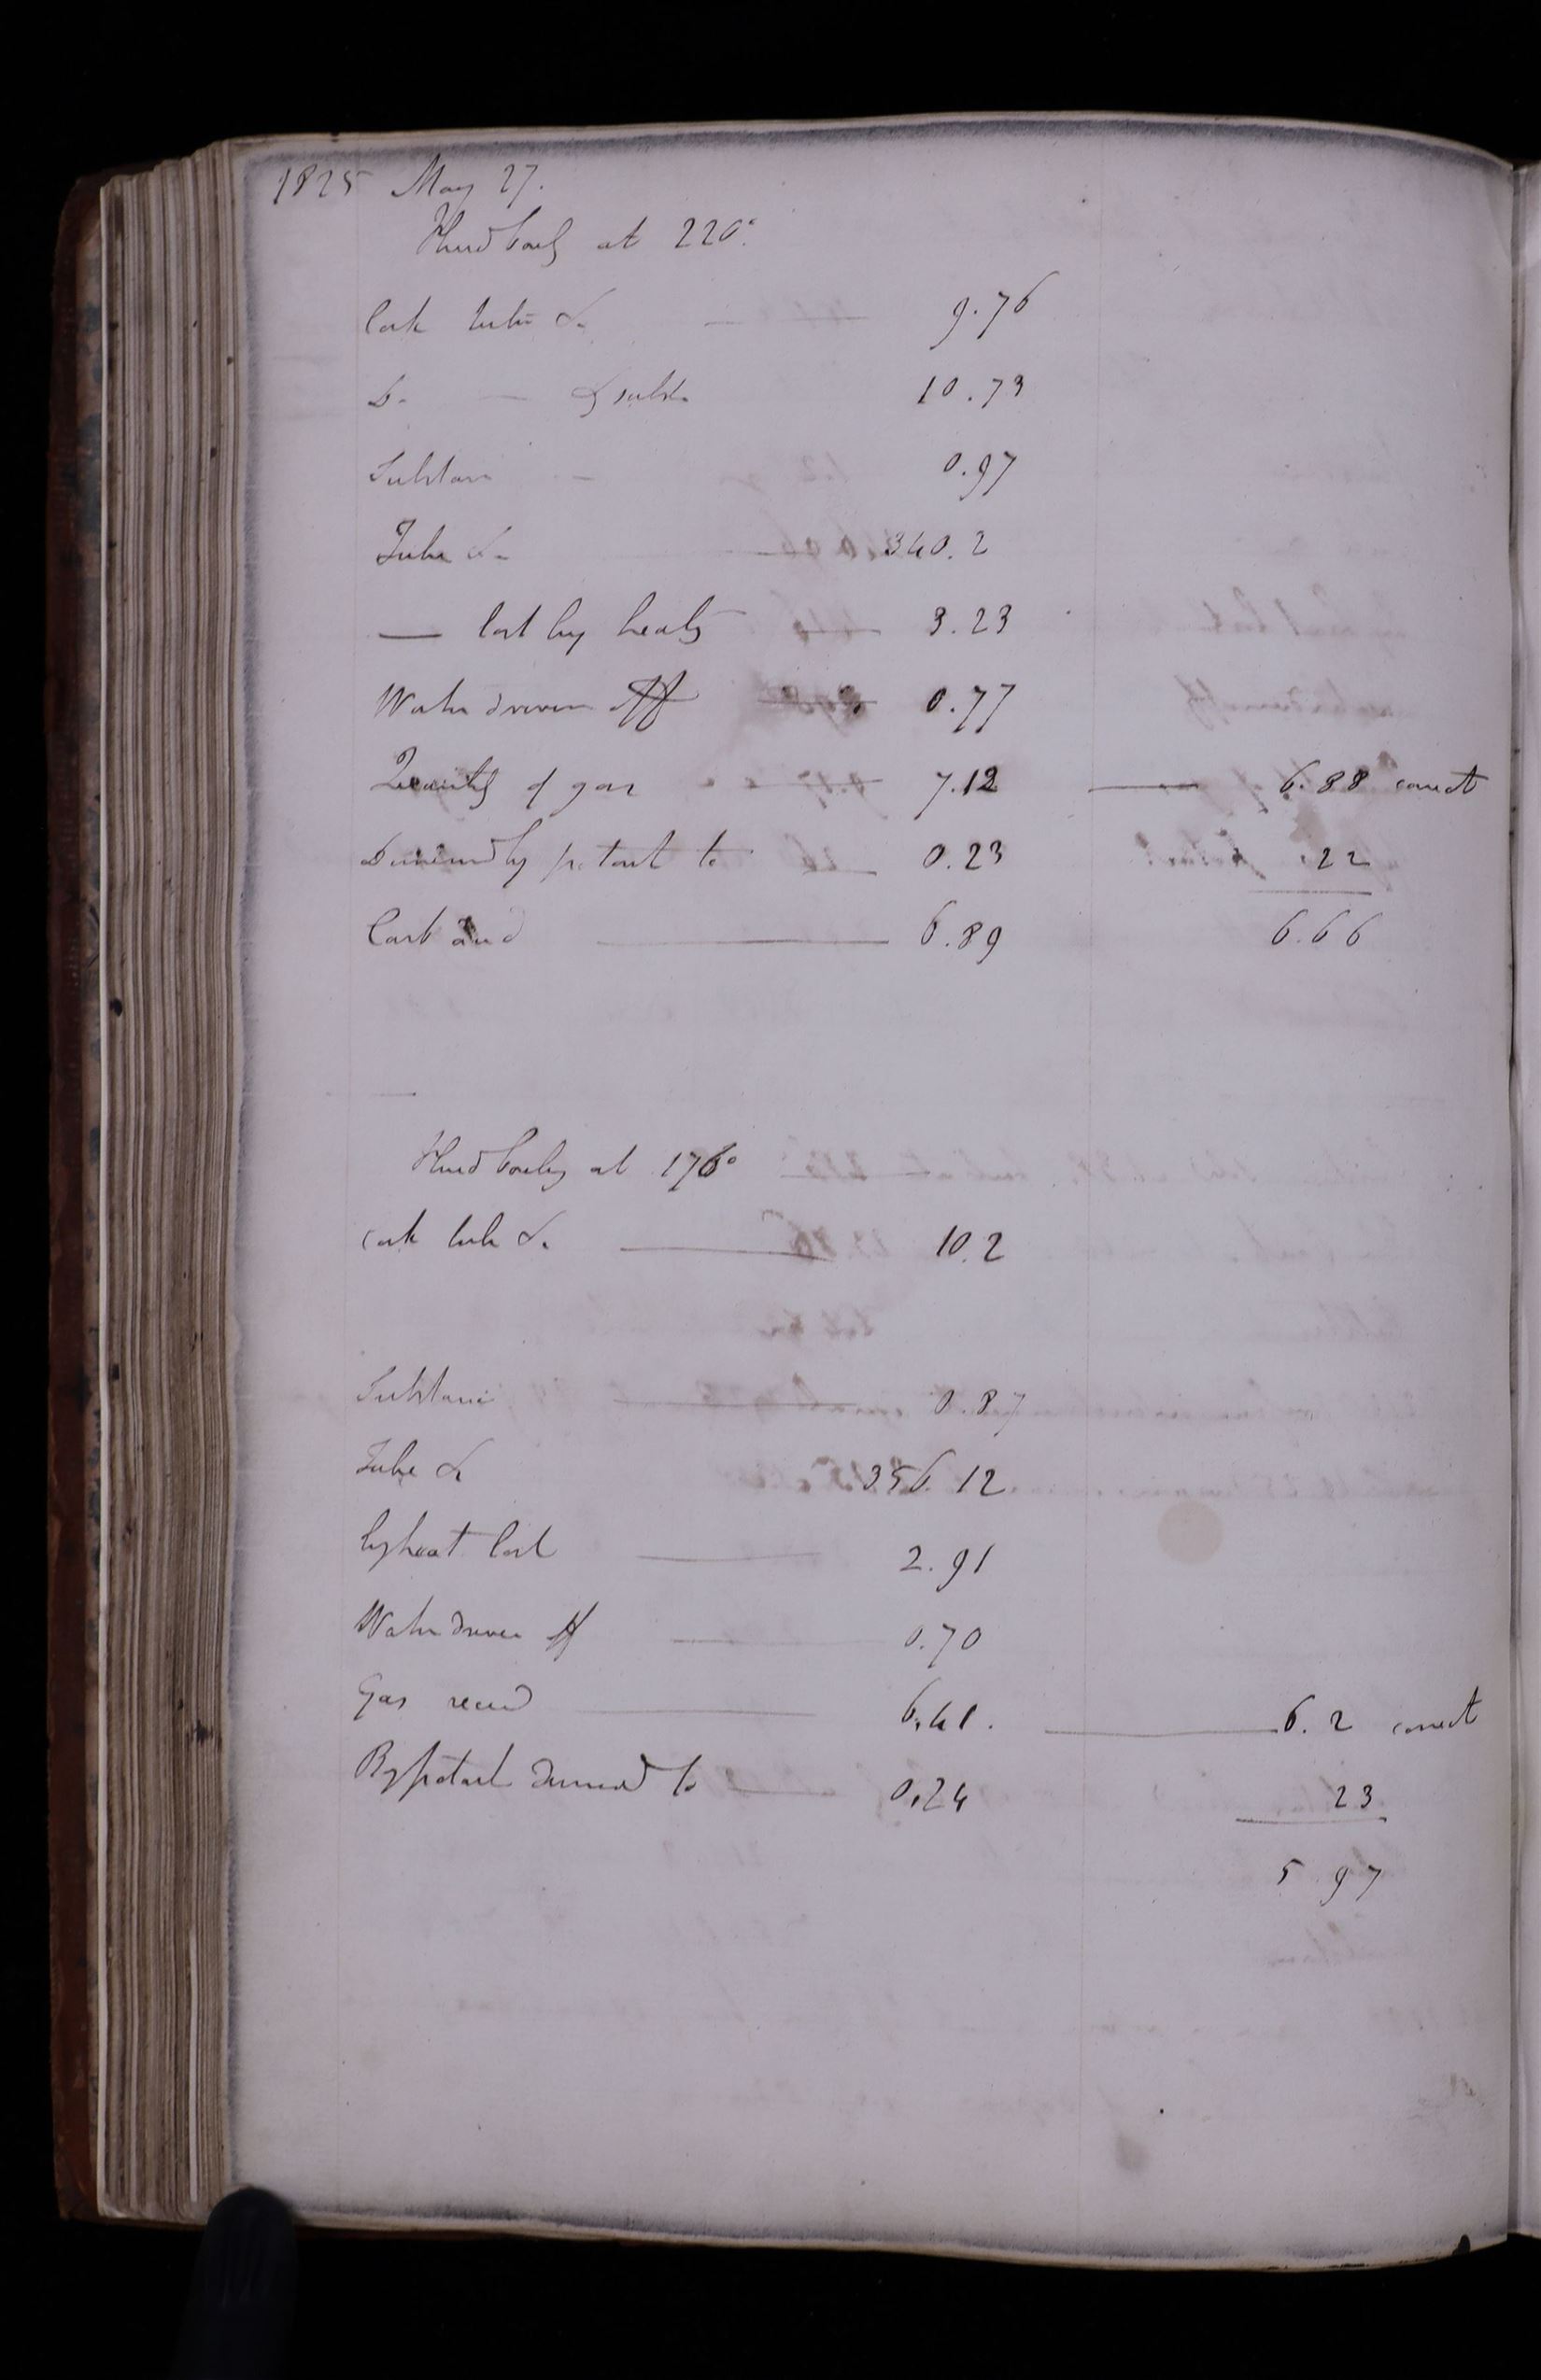 1825 May 27.
Fluid boilg at 220°.
Cork tube &c — 9.76
Do — & subst. 10.73
Substance — 0.97
Tube &c 340.2
— lost by heatg 3.23
Water driven off 0.77
Quantity of gas 7.12 — 6.88 correct
Diminished by potash to 0.23 .22
Carb acid — 6.89 6.66
Fluid boiling at 176°
cork tube &c — 10.2
Substance — 0.87
Tube &c 356.12
by heat lost — 2.91
Water driven off — 0.70
Gas recd — 6.41. — 6.2 correct
By potash dimind to — 0.24 23
5 97